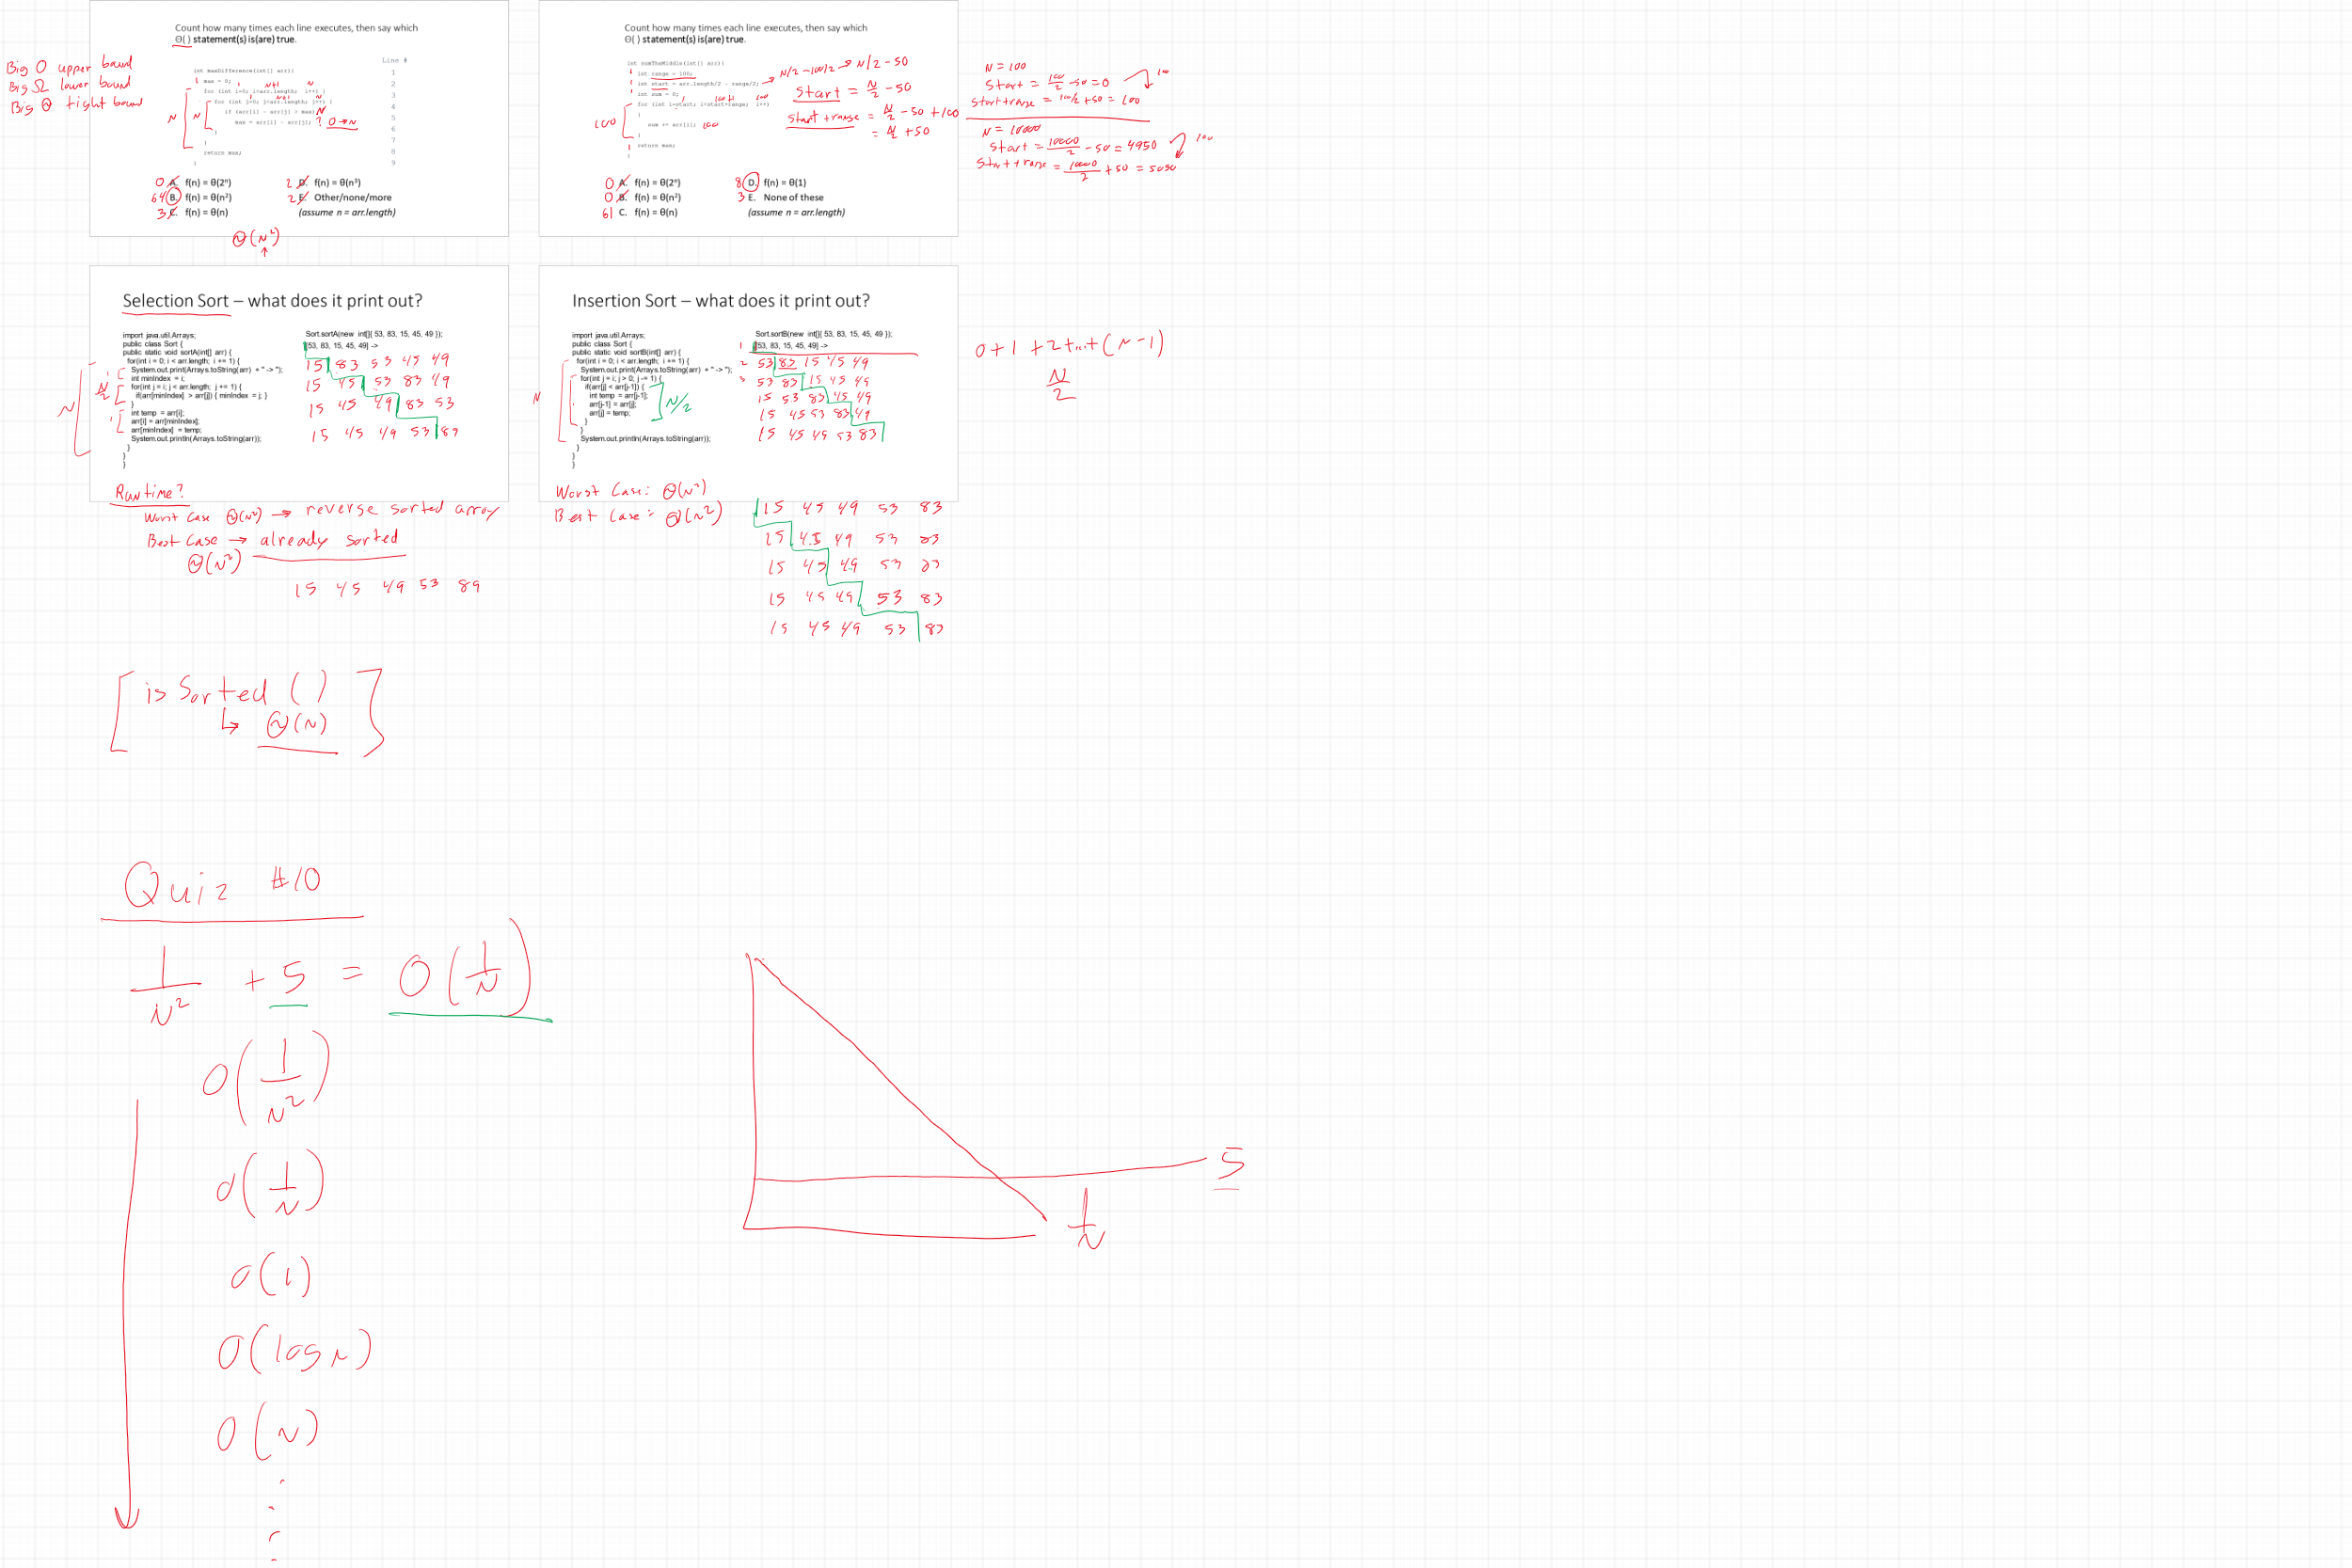 Count how many times each line executes, then say which
Θ( ) statement(s) is(are) true.
Big O upper bound
Big Ω lower bound
Big Θ tight bound
Line #
int maxDifference(int[] arr){
1 max = 0;
1 N+1 N
for (int i=0; i<arr.length; i++) {
1 N+1 N
for (int j=0; j<arr.length; j++) {
if (arr[i] - arr[j] > max) N
max = arr[i] - arr[j]; ? 0→N
}
}
return max;
}
N
N
1
2
3
4
5
6
7
8
9
0 A. f(n) = θ(2ⁿ)
64 B. f(n) = θ(n²)
3 C. f(n) = θ(n)
2 D. f(n) = θ(n³)
2 E. Other/none/more
(assume n = arr.length)
Θ(N²)
Count how many times each line executes, then say which
Θ( ) statement(s) is(are) true.
int sumTheMiddle(int[] arr){
1 int range = 100;
1 int start = arr.length/2 - range/2; → N/2 - 100/2 → N/2 - 50
1 int sum = 0;
1 100+1 100
for (int i=start; i<start+range; i++)
{
sum += arr[i]; 100
}
1 return sum;
}
100
Start = N/2 - 50
Start + range = N/2 - 50 + 100
= N/2 + 50
0 A. f(n) = θ(2ⁿ)
0 B. f(n) = θ(n²)
61 C. f(n) = θ(n)
8 D. f(n) = θ(1)
3 E. None of these
(assume n = arr.length)
N = 100
Start = 100/2 - 50 = 0
100
Start+range = 100/2 + 50 = 100
N = 10000
Start = 10000/2 - 50 = 4950
100
Start + range = 10000/2 + 50 = 5050
Selection Sort – what does it print out?
import java.util.Arrays;
public class Sort {
public static void sortA(int[] arr) {
for(int i = 0; i < arr.length; i += 1) {
System.out.print(Arrays.toString(arr) + " -> ");
int minIndex = i;
for(int j = i; j < arr.length; j += 1) {
if(arr[minIndex] > arr[j]) { minIndex = j; }
}
int temp = arr[i];
arr[i] = arr[minIndex];
arr[minIndex] = temp;
System.out.println(Arrays.toString(arr));
}
}
}
N
1
N/2
1
Sort.sortA(new int[]{ 53, 83, 15, 45, 49 });
[53, 83, 15, 45, 49] ->
15 83 53 45 49
15 45 53 83 49
15 45 49 83 53
15 45 49 53 89
Runtime?
Worst Case Θ(N²) → reverse sorted array
Best Case → already sorted
Θ(N²)
15 45 49 53 89
Insertion Sort – what does it print out?
import java.util.Arrays;
public class Sort {
public static void sortB(int[] arr) {
for(int i = 0; i < arr.length; i += 1) {
System.out.print(Arrays.toString(arr) + " -> ");
for(int j = i; j > 0; j -= 1) {
if(arr[j] < arr[j-1]) {
int temp = arr[j-1];
arr[j-1] = arr[j];
arr[j] = temp;
}
}
System.out.println(Arrays.toString(arr));
}
}
}
N
N/2
Sort.sortB(new int[]{ 53, 83, 15, 45, 49 });
1 [53, 83, 15, 45, 49] ->
2 53 83 15 45 49
3 53 83 15 45 49
15 53 83 45 49
15 45 53 83 49
15 45 49 53 83
0 + 1 + 2 + ... + (N - 1)
N/2
Worst Case: Θ(N²)
Best Case: Θ(N²)
15 45 49 53 83
15 45 49 53 83
15 45 49 53 83
15 45 49 53 83
15 45 49 53 83
is Sorted ( )
↳ Θ(N)
Quiz #10
1/N² + 5 = O(1/N)
O(1/N²)
O(1/N)
O(1)
O(log N)
O(N)
5
1/N